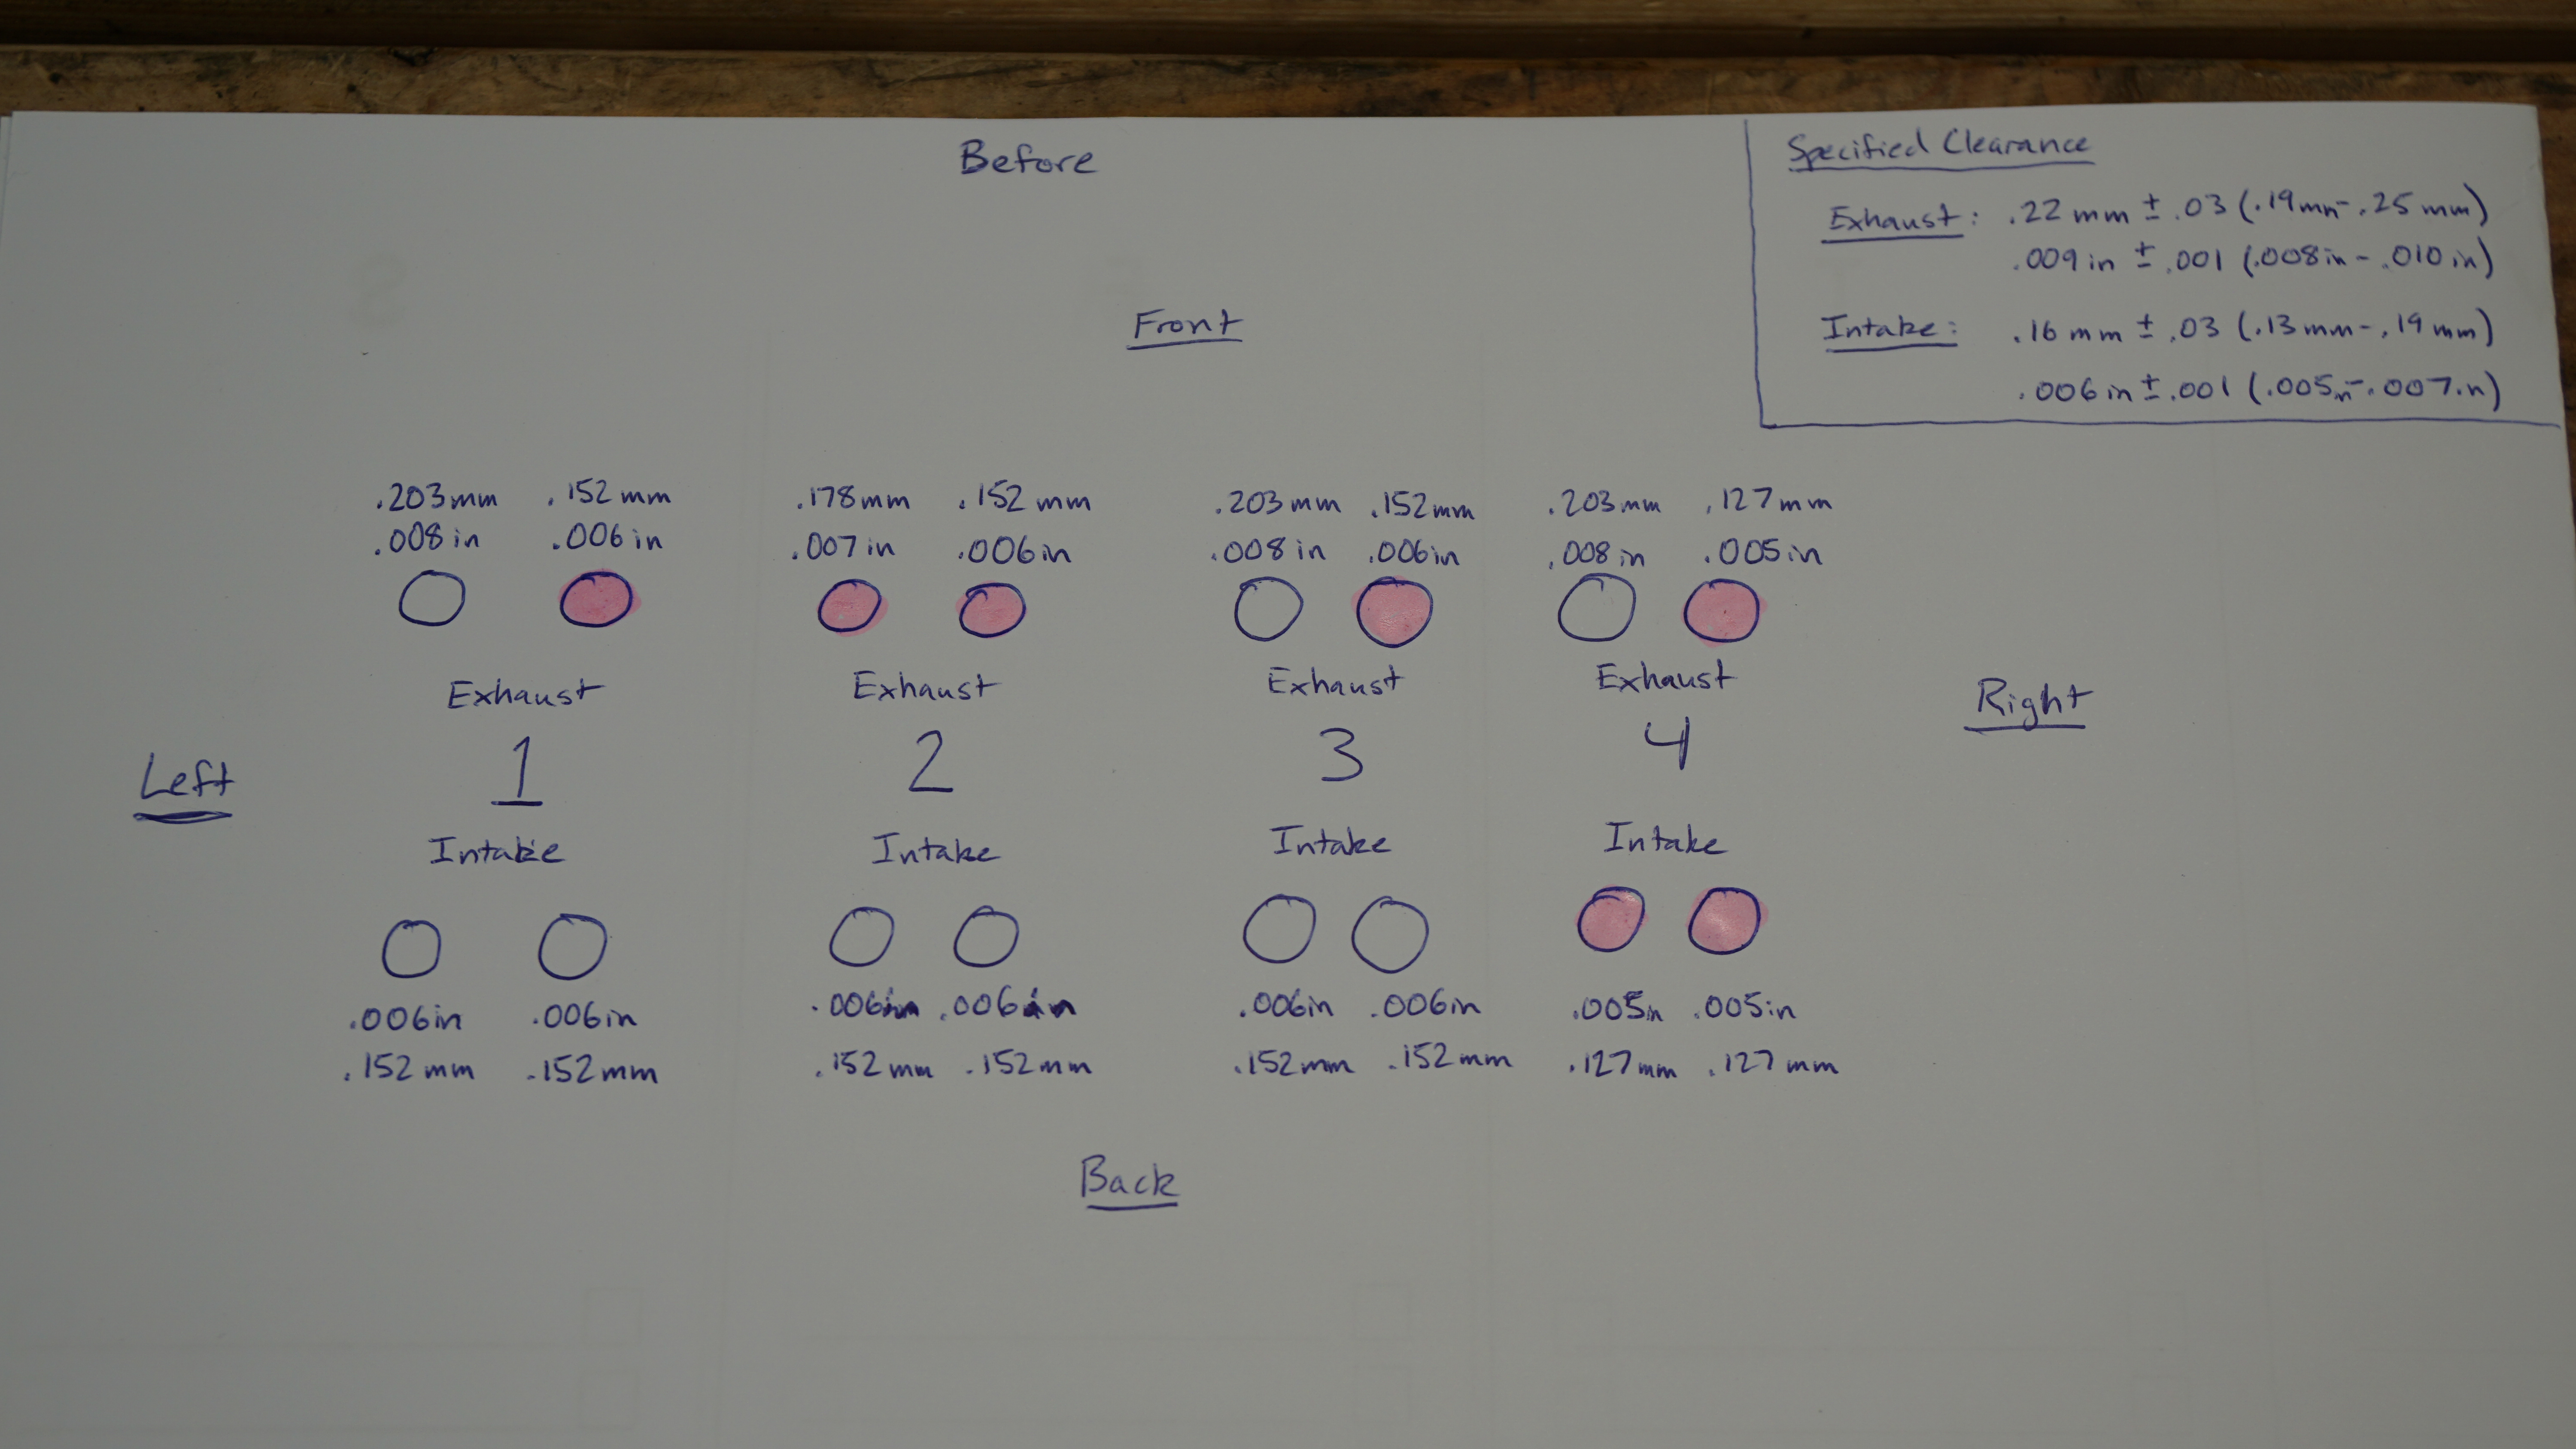 Before
Specified Clearance
Exhaust: .22 mm ± .03 (.19mm-.25 mm)
.009 in ± .001 (.008in - .010 in)
Intake: .16 mm ± .03 (.13 mm - .19 mm)
.006 in ± .001 (.005in-.007in)
Front
.203mm .152 mm .178mm .152 mm .203 mm .152mm .203 mm .127 mm
.008 in .006 in .007 in .006in .008 in .006in .008 in .005in
Exhaust Exhaust Exhaust Exhaust
Left 1 2 3 4 Right
Intake Intake Intake Intake
.006in .006in .006in .006in .006in .006in .005in .005in
.152 mm .152mm .152 mm .152mm .152mm .152mm .127mm .127 mm
Back